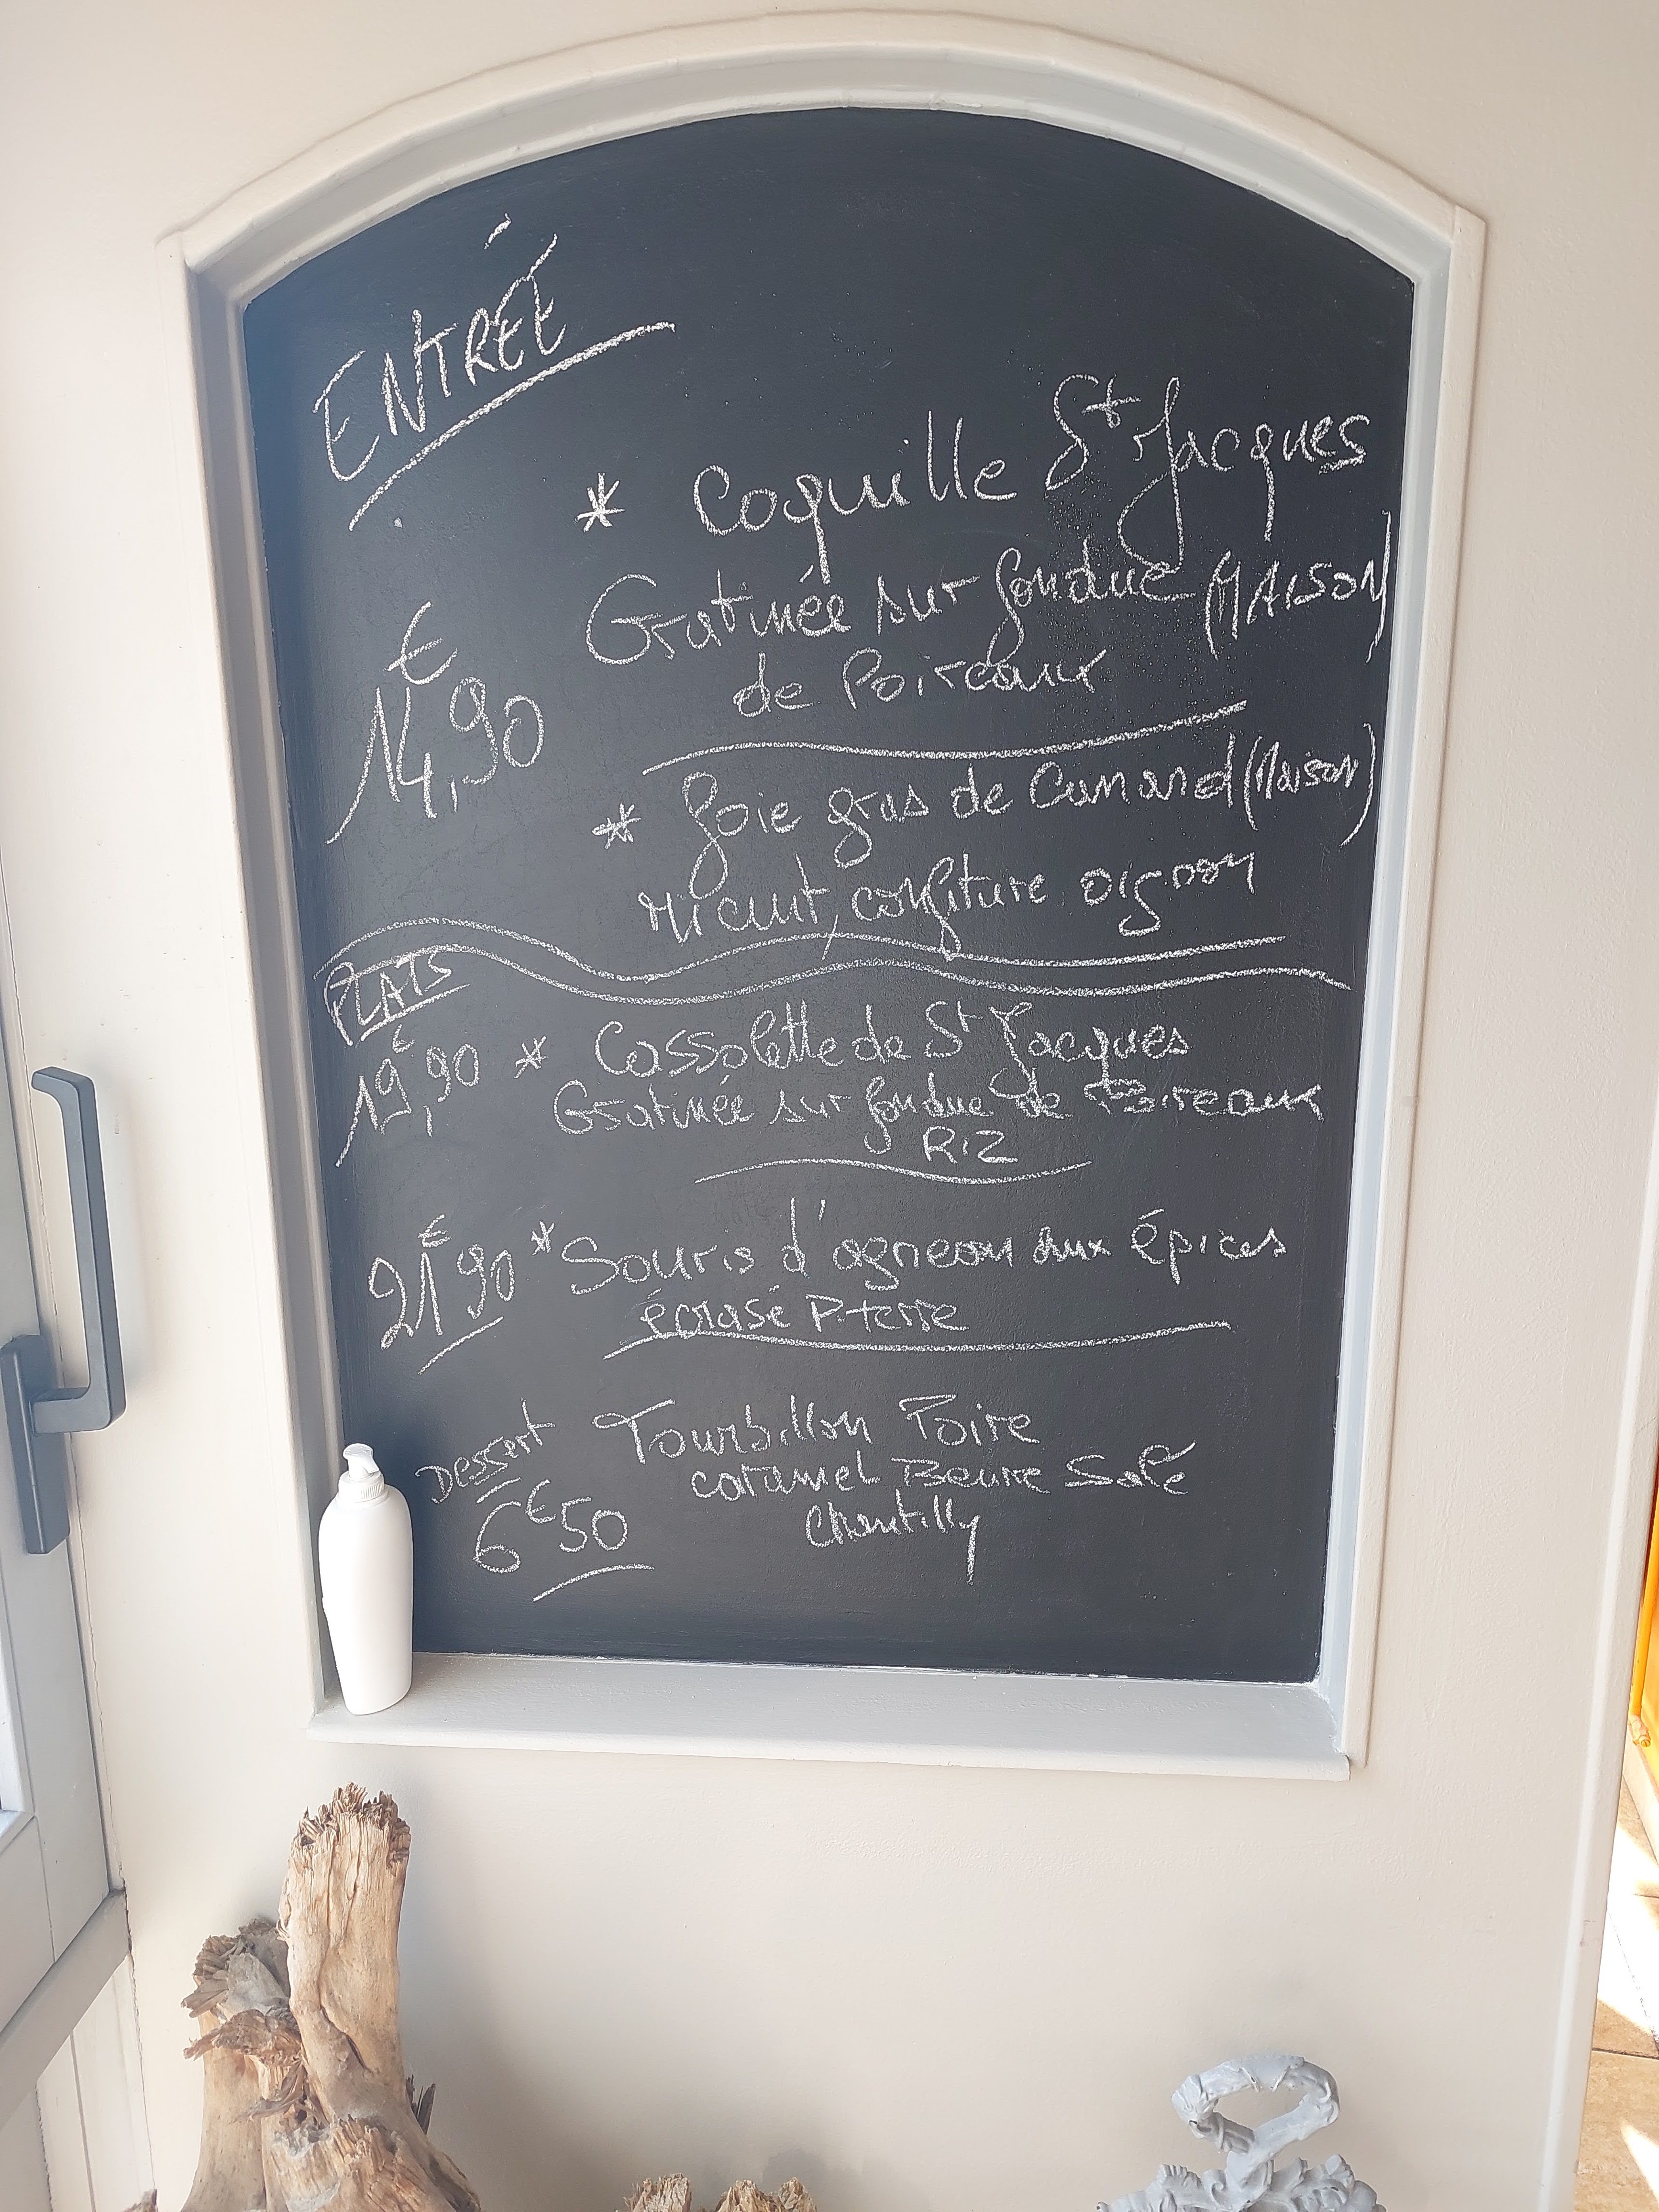 ENTRÉE
* Coquille St Jacques
Gratinée sur fondue (MAISON)
de Poireaux
14,€90
* foie gras de Canard (Maison)
micuit, confiture oignon
PLATS
19,€90 * Cassolette de St Jacques
Gratinée sur fondue de Poireaux
RIZ
21€90 * Souris d'agneau aux épices
écrasé P.terre
Dessert Tourbillon Poire
caramel Beurre Salé
6€50 Chantilly